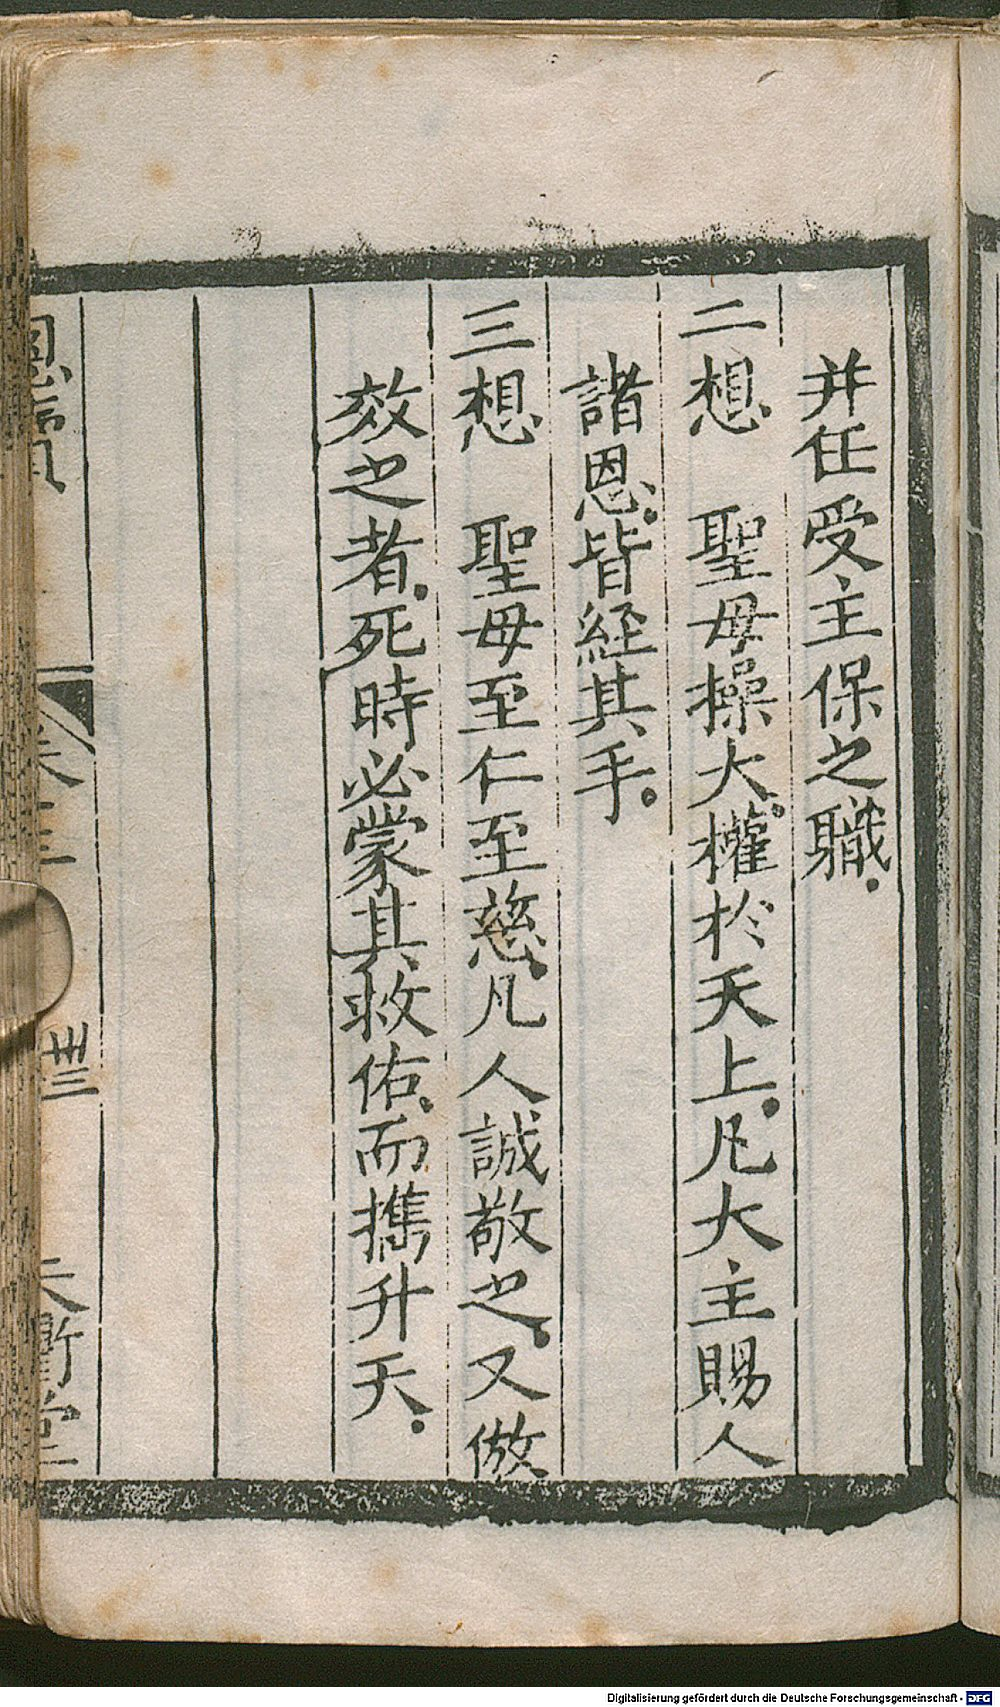 并任受主保之職.
二想　聖母操大權於天上.凡大主賜人
諸恩.皆經其手.
三想　聖母至仁至慈.凡人誠敬之.又倣
效之者.死時必蒙其救佑.而攜升天.
卅三
Digitalisierung gefördert durch die Deutsche Forschungsgemeinschaft - DFG